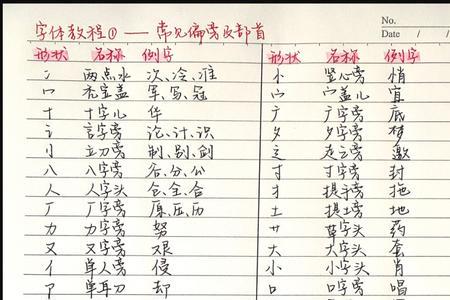 No.
字体教程① —— 常见偏旁及部首
Date / /
形状 名称 例字 形状 名称 例字
冫 两点水 次、冷、准 忄 竖心旁 悄
冖 秃宝盖 军、写、冠 宀 宀盖儿 宜
十 十字儿 华 广 广字旁 底
讠 言字旁 论、计、识 夕 夕字旁 梦
刂 立刀旁 制、别、剑 辶 走之旁 邀
八 八字旁 谷、分、公 寸 寸字旁 封
人 人字头 仓、全、合 扌 提手旁 拖
厂 厂字旁 原、压、历 土 提土旁 地
力 力字旁 努 艹 草字头 药
又 又字旁 艰 大 大字头 套
亻 单人旁 侵 小 小字头 肖
卩 单耳刀 却 口 口字旁 唱